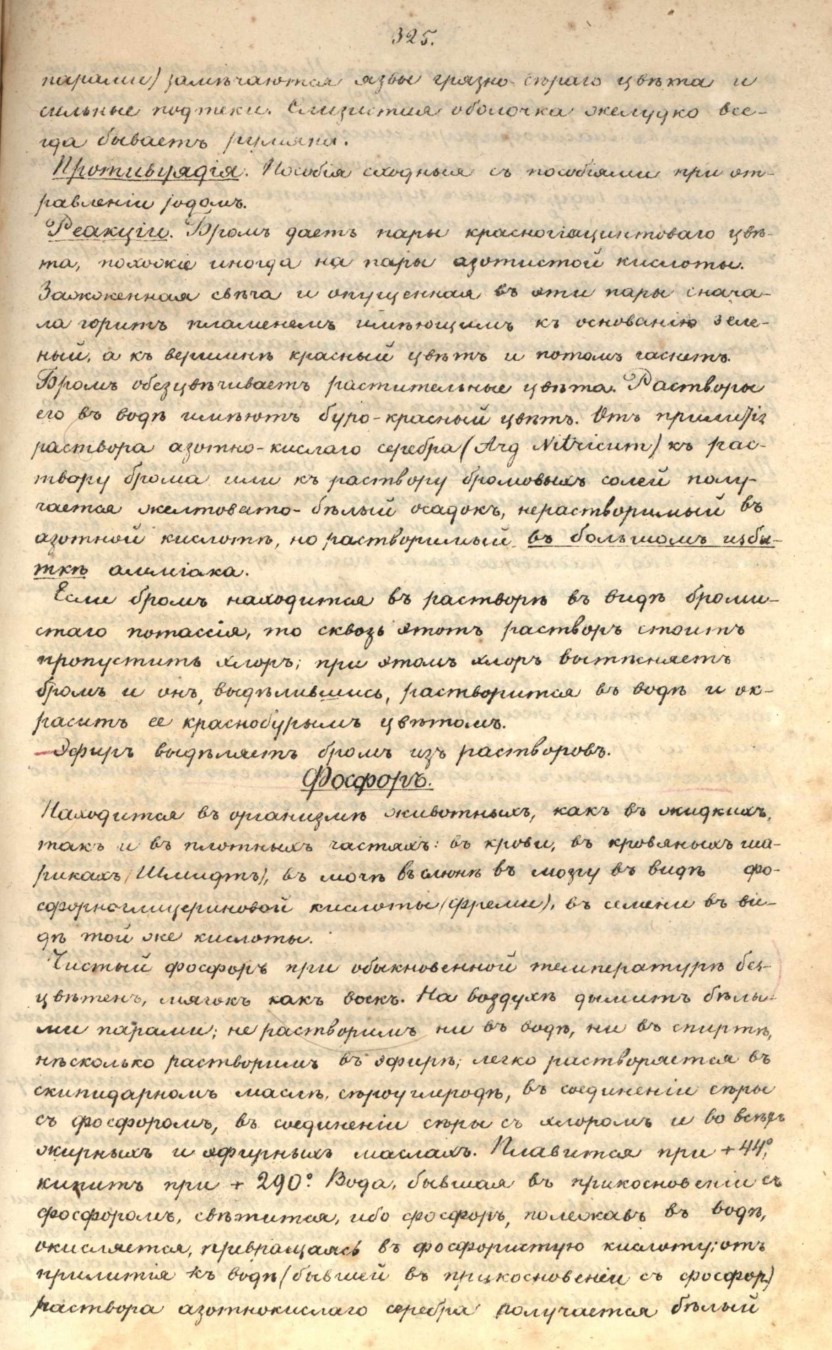 325.
парами) замѣчаются язвы грязно-сѣраго цвѣта и
сильные подтеки. Слизистая оболочка желудка все-
гда бываетъ румяна.
Противуядія. Пособія сходныя съ пособіями при от-
равленіи іодомъ.
Реакціи. Бромъ даетъ пары красногіацинтоваго цвѣ-
та, похожіе иногда на пары азотистой кислоты.
Зажженная свѣча и опущенная въ эти пары снача-
ла горитъ пламенемъ имѣющимъ къ основанію зеле-
ный, а къ вершинѣ красный цвѣтъ и потомъ гаснетъ.
Бромъ обезцвѣчиваетъ растительные цвѣта. Растворы
его въ водѣ имѣютъ буро-красный цвѣтъ. Отъ прилитія
раствора азотно-кислаго серебра (Arg Nitricum) къ рас-
твору брома или къ раствору бромовыхъ солей полу-
чается желтовато-бѣлый осадокъ, нерастворимый въ
азотной кислотѣ, но растворимый въ большомъ избы-
ткѣ амміака.
Если бромъ находится въ растворѣ въ видѣ броми-
стаго потассія, то сквозь этотъ растворъ стоитъ
пропустить хлоръ; при этомъ хлоръ вытѣсняетъ
бромъ и онъ, выдѣлившись, растворится въ водѣ и ок-
раситъ ее краснобурымъ цвѣтомъ.
Эфиръ выдѣляетъ бромъ изъ растворовъ.
Фосфоръ.
Находится въ организмѣ животныхъ, какъ въ жидкихъ,
такъ и въ плотныхъ частяхъ: въ крови, въ кровяныхъ ша-
рикахъ (Шмидтъ), въ мочѣ въ слюнѣ въ мозгу въ видѣ фо-
сфорноглицериновой кислоты (Фреми), въ семени въ ви-
дѣ той же кислоты.
Чистый фосфоръ при обыкновенной температурѣ без-
цвѣтенъ, мягокъ какъ воскъ. На воздухѣ дымитъ бѣлы-
ми парами; не растворимъ ни въ водѣ, ни въ спиртѣ,
нѣсколько растворимъ въ эфирѣ; легко растворяется въ
скипидарномъ маслѣ, сѣроуглеродѣ, въ соединеніи сѣры
съ фосфоромъ, въ соединеніи сѣры съ хлоромъ и во всѣхъ
жирныхъ и эфирныхъ маслахъ. Плавится при +44°,
кипитъ при + 290°. Вода, бывшая въ прикосновеніи съ
фосфоромъ, свѣтится, ибо фосфоръ, полежавъ въ водѣ,
окисляется, превращаясь въ фосфористую кислоту; отъ
прилитія къ водѣ (бывшей въ прикосновеніи съ фосфор)
раствора азотнокислаго серебра получается бѣлый